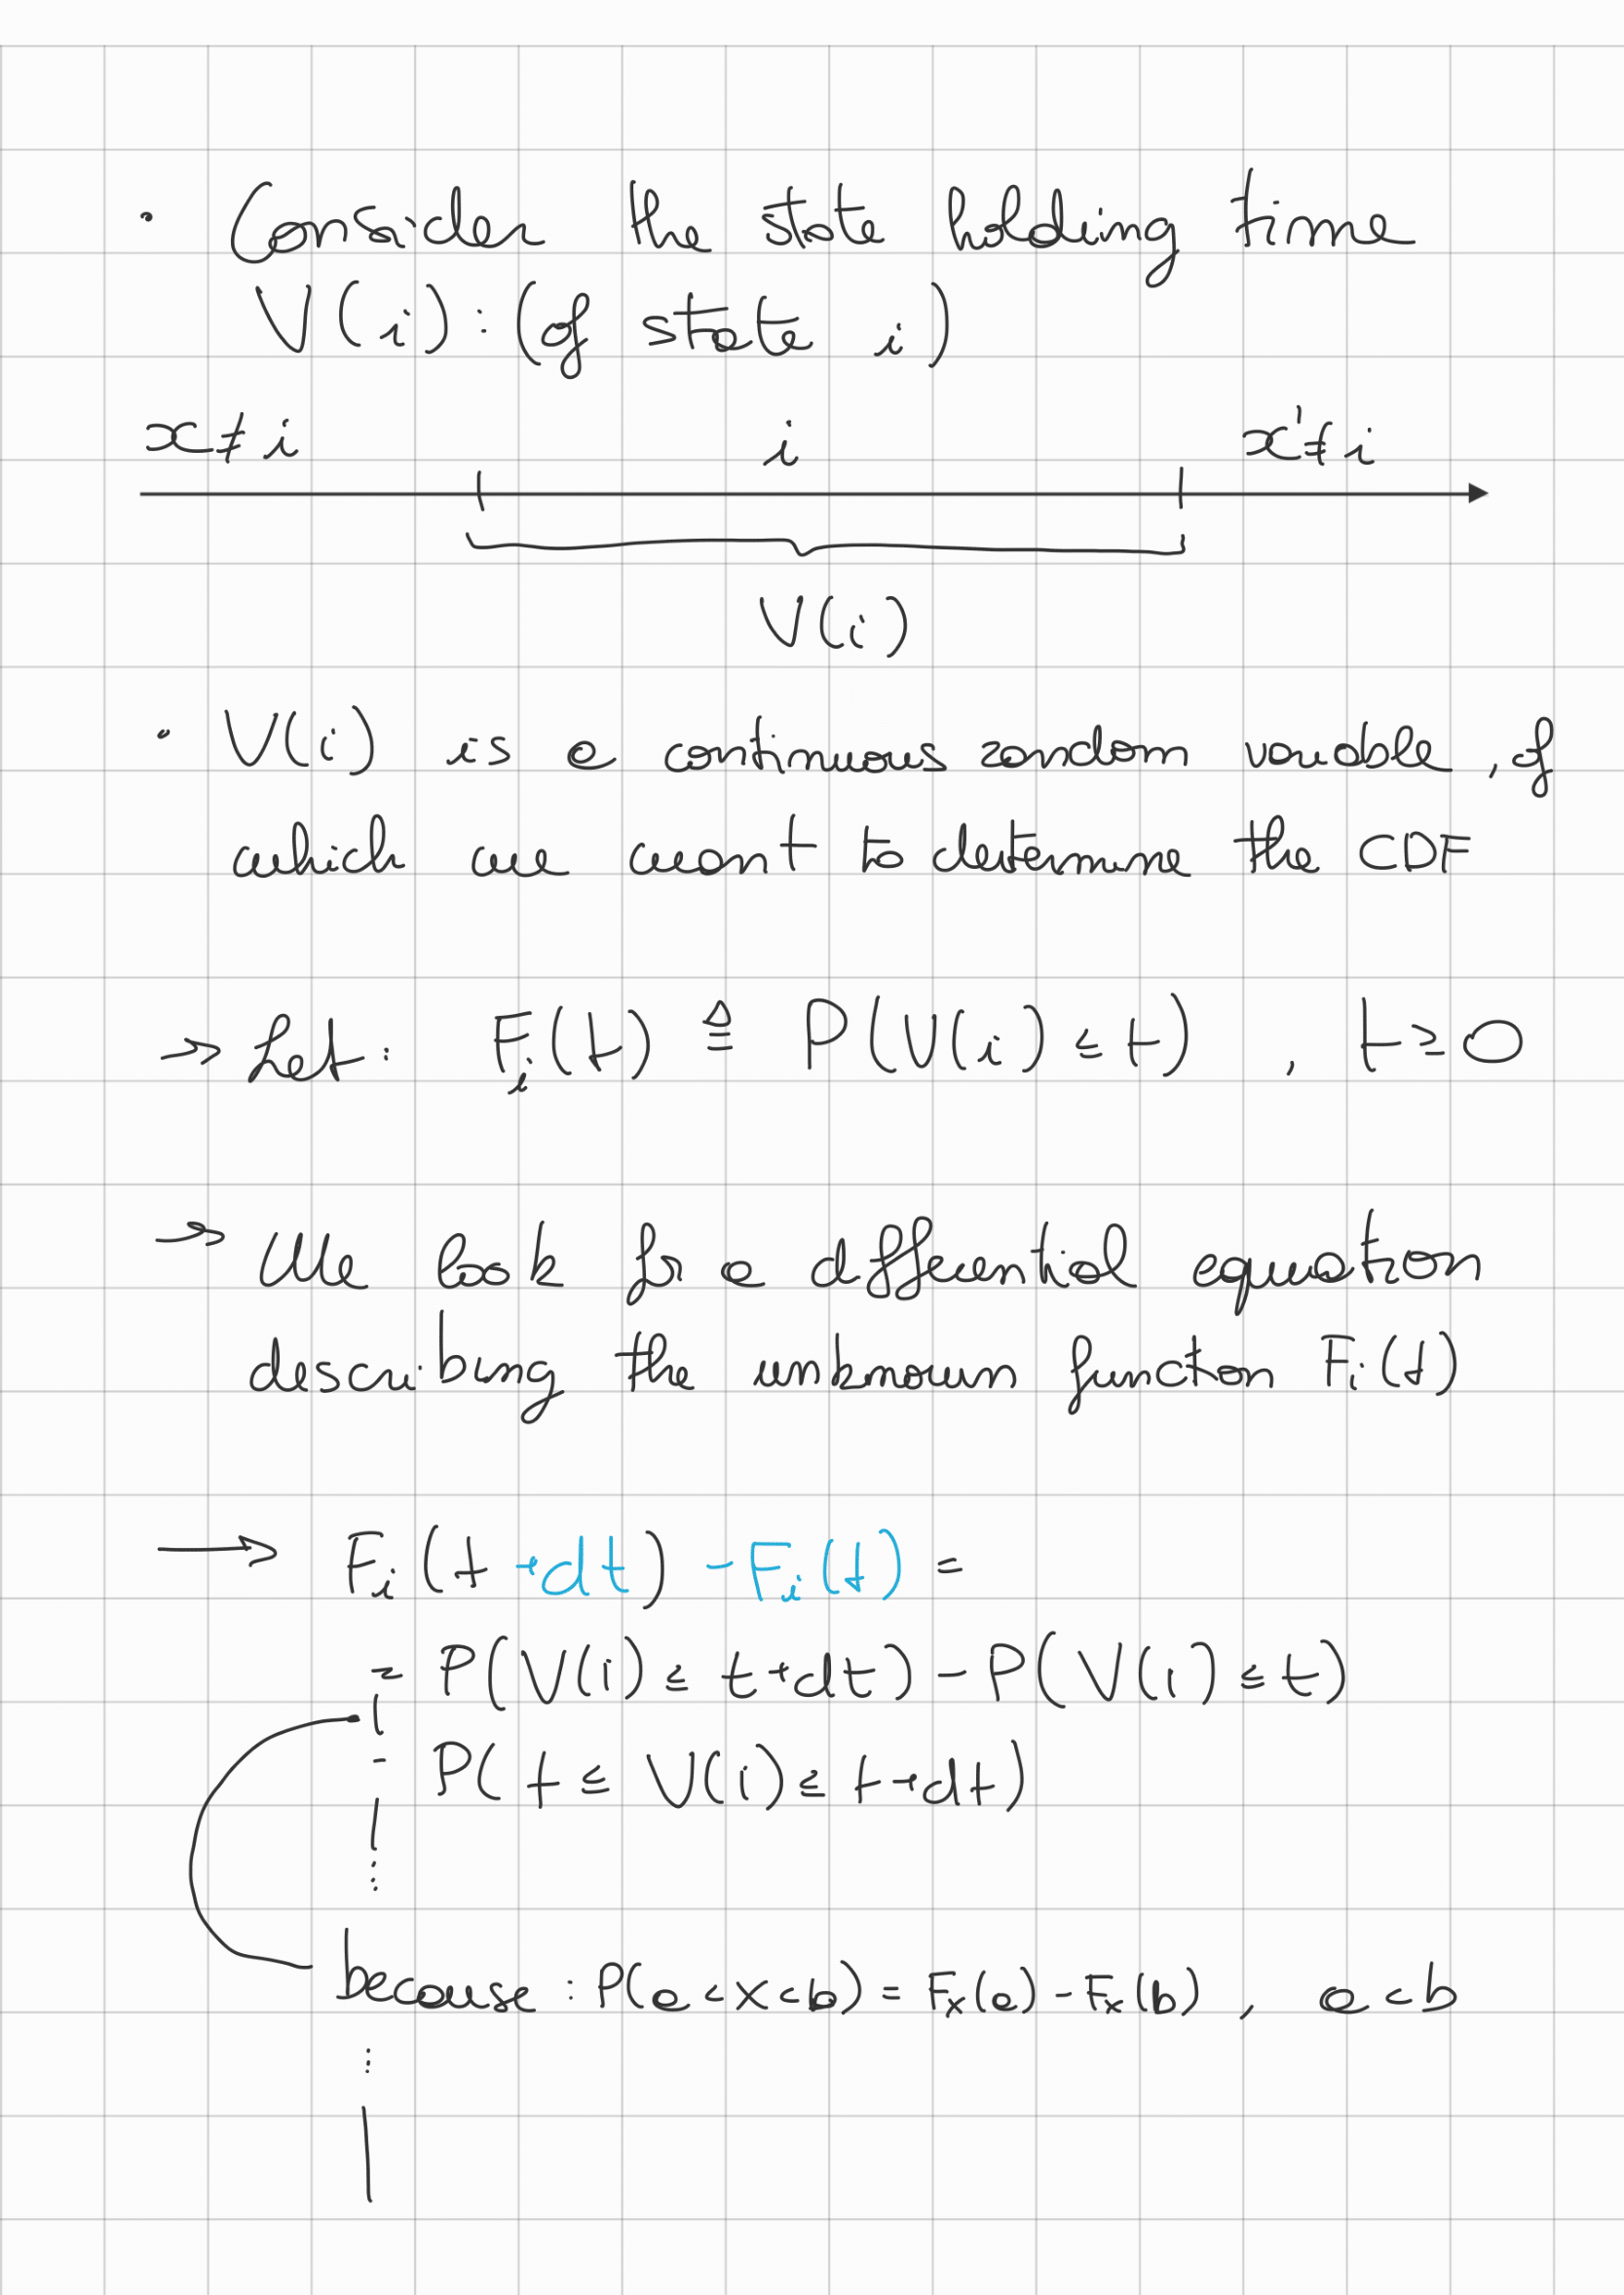 · Consider the state holding time
V(i): (of state i)
x≠i i x'≠i
V(i)
· V(i) is a continuous random variable, of
which we want to determine the CDF
→ Let: Fᵢ(t) ≜ P(V(i) ≤ t) , t≥0
→ We look for a differential equation
describing the unknown function Fᵢ(t)
→ Fᵢ(t+dt) - Fᵢ(t) =
= P(V(i) ≤ t+dt) - P(V(i) ≤ t)
= P(t ≤ V(i) ≤ t+dt)
because : P(a<x<b) = Fₓ(a) - Fₓ(b) , a<b